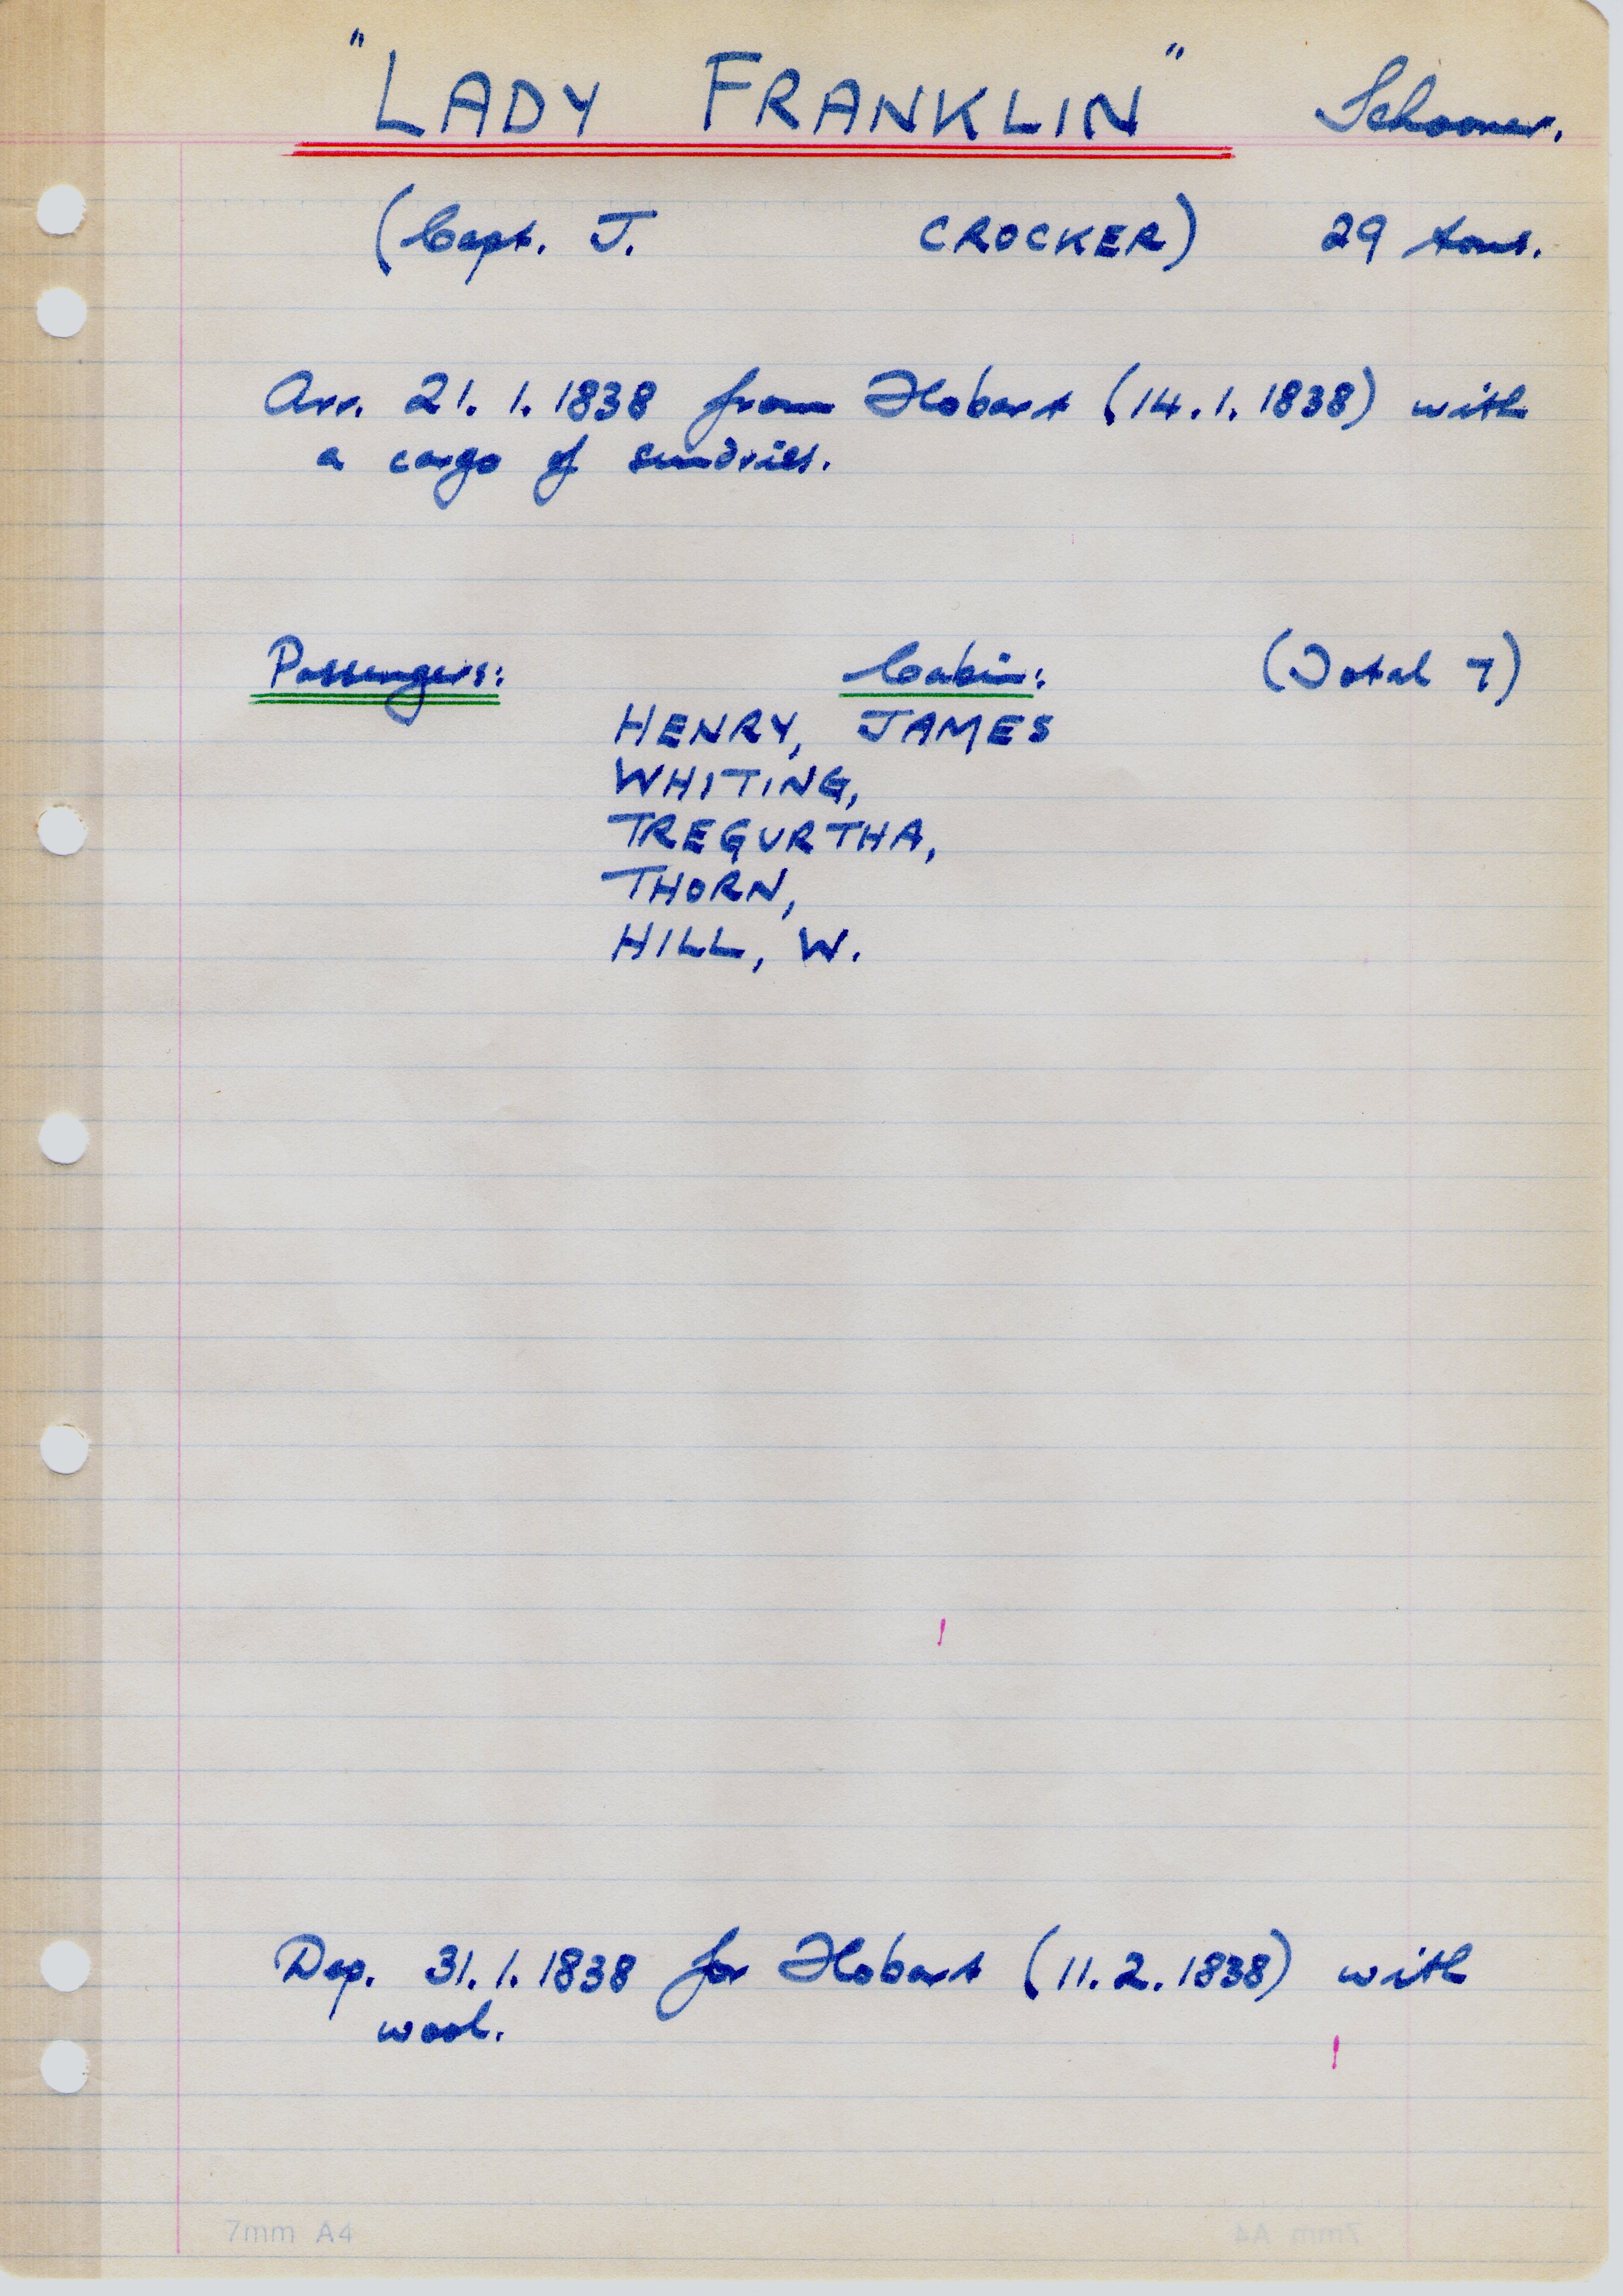 "LADY FRANKLIN" Schooner.
(Capt. J. CROCKER) 29 tons.
Arr. 21.1.1838 from Hobart (14.1.1838) with
a cargo of sundries.
Passengers: Cabin: (Total 7)
HENRY, JAMES
WHITING,
TREGURTHA,
THORN,
HILL, W.
Dep. 31.1.1838 for Hobart (11.2.1838) with
wool.
7mm A4